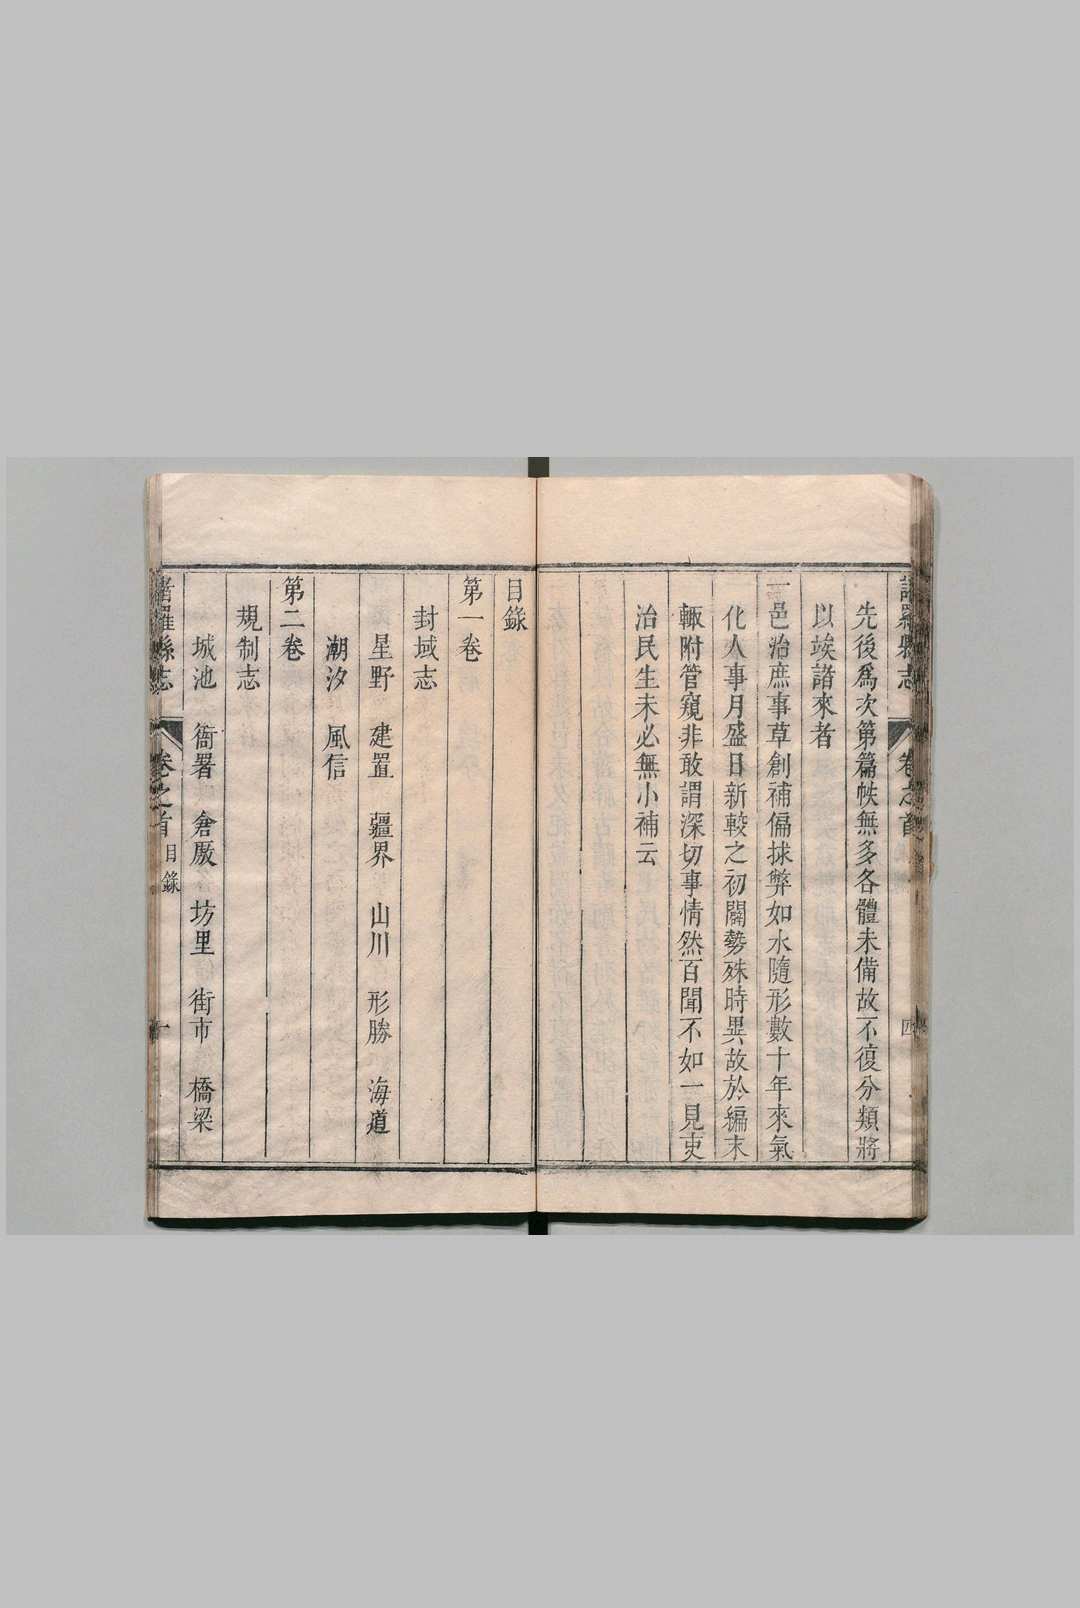 諸羅縣志
卷之首
四
先後爲次第篇帙無多各體未備故不復分類將
以竢諸來者
一邑治庶事草創補偏捄弊如水隨形數十年來氣
化人事月盛日新較之初闢勢殊時異故於編末
輒附管窺非敢謂深切事情然百聞不如一見吏
治民生未必無小補云
目錄
第一卷
封域志
星野 建置 疆界 山川 形勝 海道
潮汐 風信
第二卷
規制志
城池 衙署 倉廒 坊里 街市 橋梁
諸羅縣志
卷之首
目錄
一